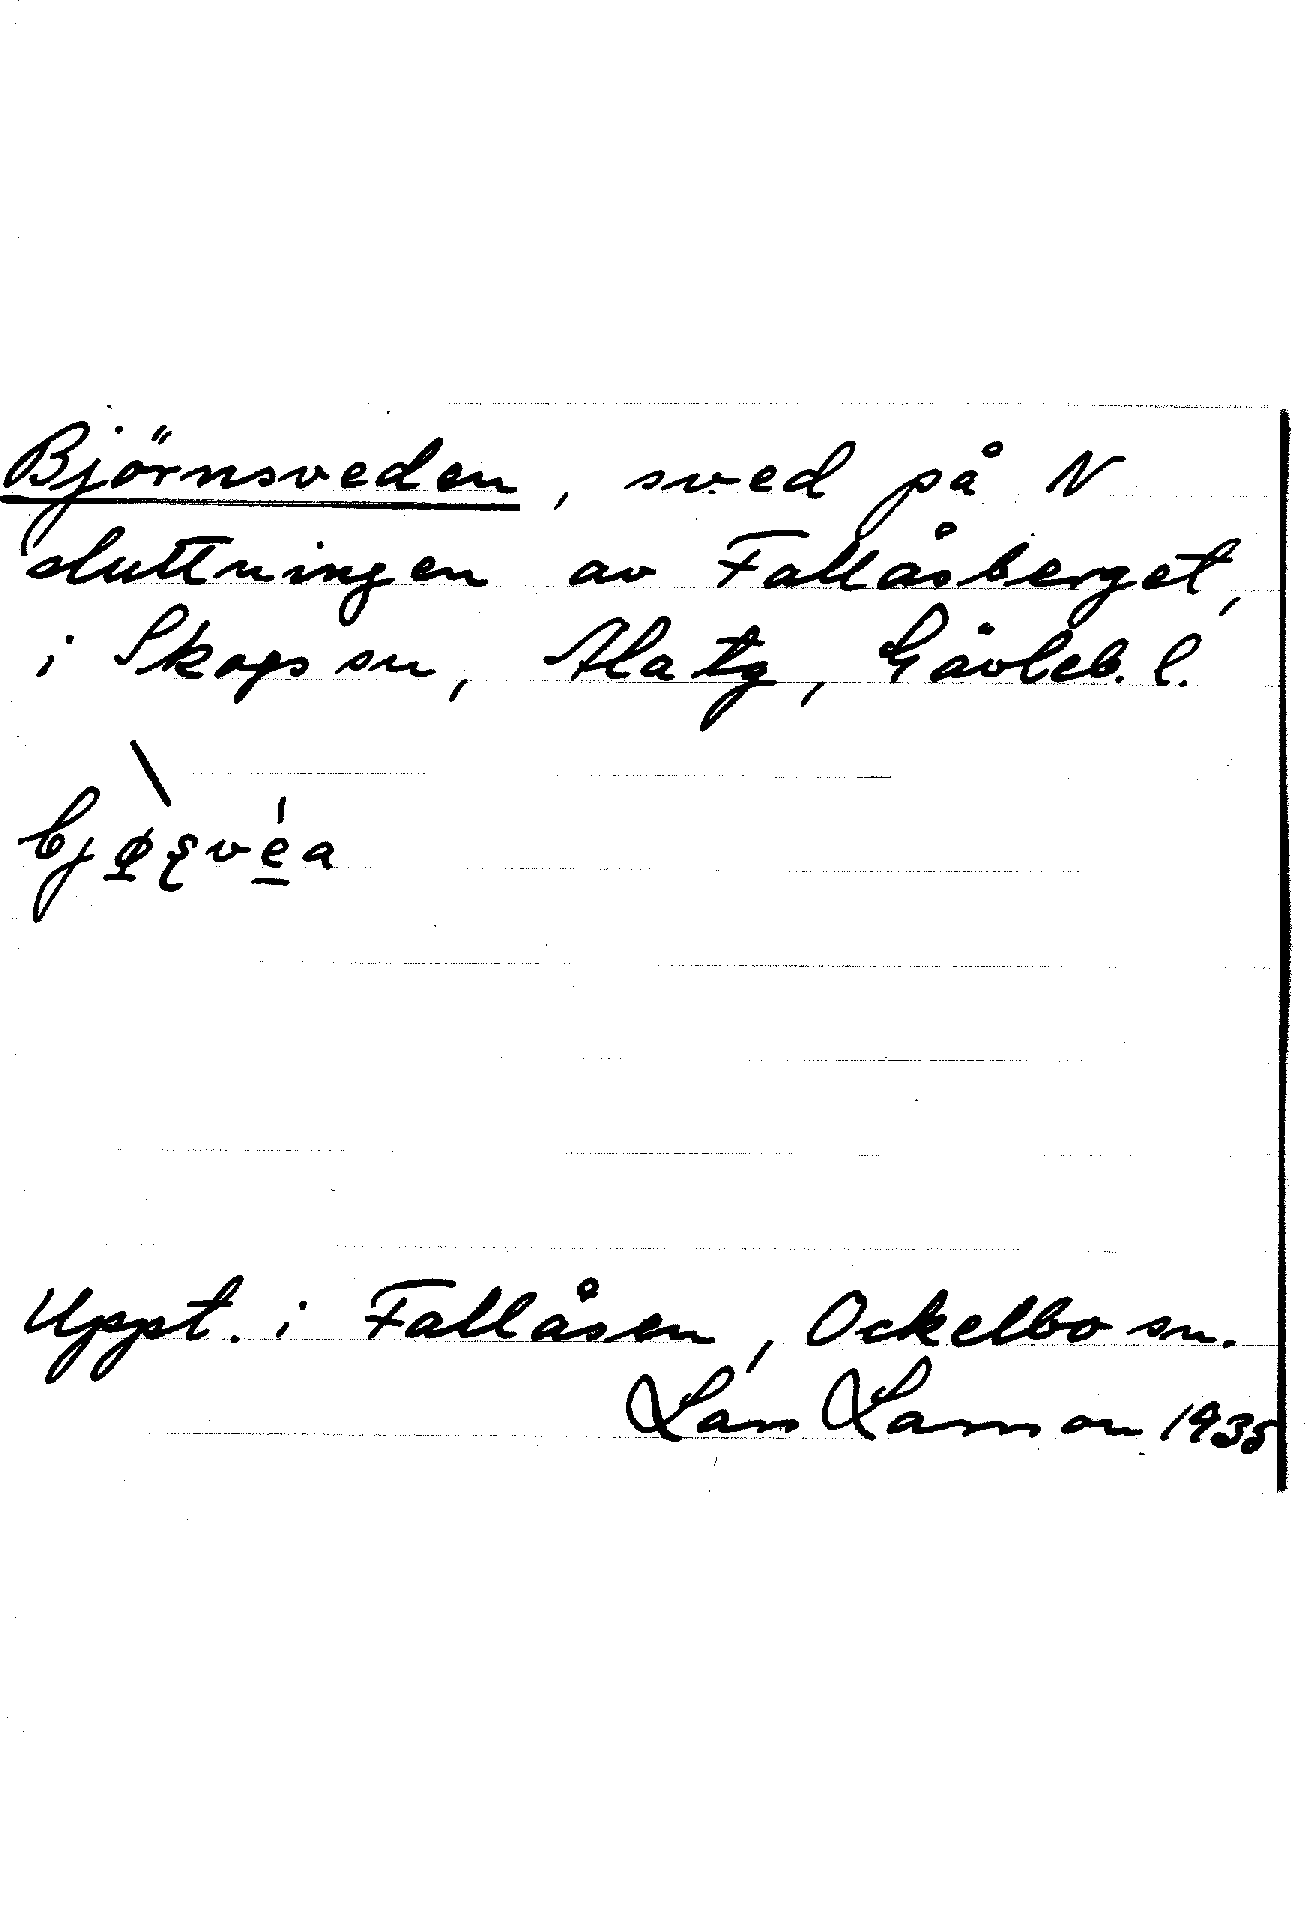 Björnsveden, sved på N
sluttningen av Fallåsberget,
i Skogs sn, Ala tg, Gävleb. l.
Uppt. i Fallåsen, Ockelbo sn.
Lars Larsson 1935